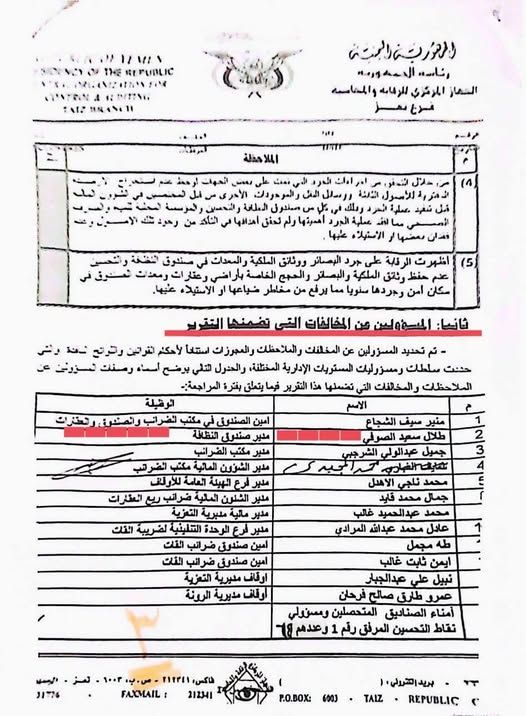 الجمهورية اليمنية
رئاسة الجمهورية
الجهاز المركزي للرقابة والمحاسبة
فرع تعز
OF YEMEN
PRESIDENCY OF THE REPUBLIC
ORGANIZATION FOR
CONTROL & AUDITING
TAIZ BRANCH
م
الملاحظة
(4)
من خلال التحقق من إجراءات الجرد التي تمت على بعض الجهات لوحظ عدم استخراج الأرصدة
الدفترية للأصول الثابتة ووسائل النقل والموجودات الأخرى من قبل المختصين في الشؤون المالية
قبل تنفيذ عملية الجرد وذلك في كل من صندوق النظافة والتحسين والمؤسسة المحلية للمياه والصرف
الصحي مما افقد عملية الجرد أهميتها ولم تحقق أهدافها في التأكد من وجود تلك الأصول وعدم
فقدان بعضها او الاستيلاء عليها.
(5)
أظهرت الرقابة على جرد البصائر ووثائق الملكية والمعدات في صندوق النظافة والتحسين
عدم حفظ وثائق الملكية والبصائر والحجج الخاصة بأراضي وعقارات ومعدات الصندوق في
مكان آمن وجردها سنويا مما يرفع من مخاطر ضياعها او الاستيلاء عليها.
ثانيا: المسؤولين عن المخالفات التي تضمنها التقرير
- تم تحديد المسؤولين عن المخالفات والملاحظات والمجوزات استناداً لأحكام القوانين واللوائح النافذة والتي
حددت سلطات ومسؤوليات المستويات الإدارية المختلفة، والجدول التالي يوضح أسماء وصفات المسؤولين عن
الملاحظات والمخالفات التي تضمنها هذا التقرير فيما يتعلق بفترة المراجعة:
م الاسم الوظيفة
1 منير سيف الشجاع امين الصندوق في مكتب الضرائب والصندوق والعقارات
2 طلال سعيد الصوفي مدير صندوق النظافة
3 جميل عبدالولي الشرجبي مدير مكتب الضرائب
4 مدير الشؤون المالية مكتب الضرائب
5 محمد ناجي الاهدل مدير فرع الهيئة العامة للأوقاف
جمال محمد قايد مدير الشئون المالية ضرائب ريع العقارات
محمد عبدالحميد غالب مدير مالية مديرية التعزية
عادل محمد عبدالله المرادي مدير فرع الوحدة التنفيذية لضريبة القات
طه مجمل امين صندوق ضرائب القات
ايمن ثابت غالب امين صندوق ضرائب القات
نبيل علي عبدالجبار أوقاف مديرية التعزية
عمرو طارق صالح فرحان أوقاف مديرية الرونة
أمناء الصناديق المتحصلين ومسؤولي
نقاط التحسين المرفق رقم 1 وعددهم 18
٣
بريد إلكتروني: ( ) فاكس: ٢١٢٣٤١ - ص.ب: ٦٠٠٣ - تعز -
31776 - FAXMAIL : 212341 P.O.BOX: 6003 - TAIZ - REPUBLIC